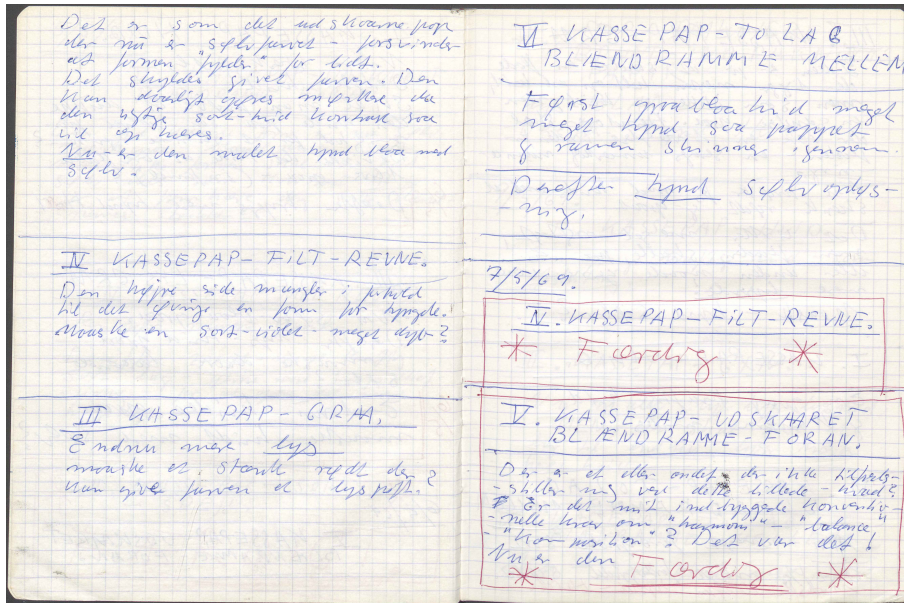 Det er som det udskaarne pap
der nu er "sølvfarvet - forsvinder
at formen "fylder" for lidt.
Det skyldes givet farven. Den
kan daarligt gøres mørkere da
den rigtige sort-hvid kontrast saa
vil op
Nu - er den malet tynd blaa med
sølv.
IV KASSEPAP-FILT-REVNE.
Den højre side mangler i forhold
til det øvrige en form for tyngde.
Maaske en sort-violet - meget dyb?
III KASSEPAP-GRAA.
Endnu mere lys
maaske et stærkt rødt der
kan give farven et lyspift?
VI KASSEPAP-TO LAG
BLÆNDRAMME MELLEM
Først graablaa hvid meget
meget tynd saa pappet
& ramen skinner igennem.
Derefter tynd sølvoplys-
-ning.
7/5/69.
IV. KASSEPAP-FILT-REVNE.
* Færdig *
V. KASSEPAP-UDSKAARET
BLÆNDRAMME-FORAN.
Der er et eller andet der ikke tilfreds-
-stiller mig ved dette billede - hvad?
Er det mit indbyggede konventio-
-nelle krav om "harmoni" - "balance"
- "komposition"? Det var det!
Nu er den Færdig
* *